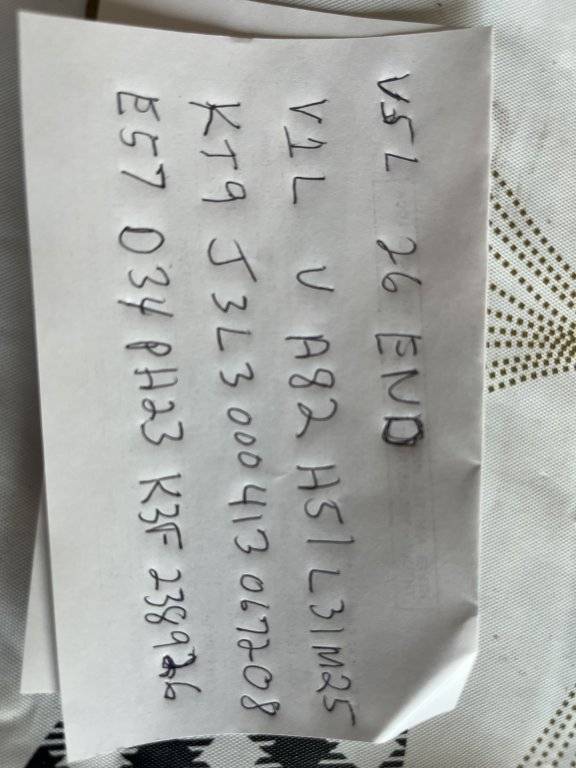 VSL 26 END
V1L V A82 H51L31M25
KT9 J3L3000413067208
E57 D34PH23 K3F 2389226